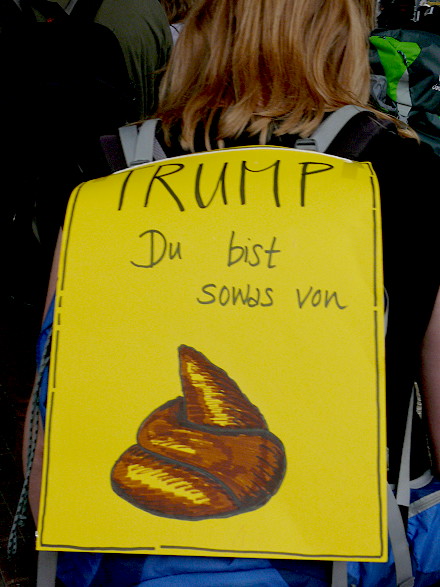 TRUMP
Du bist
sowas von